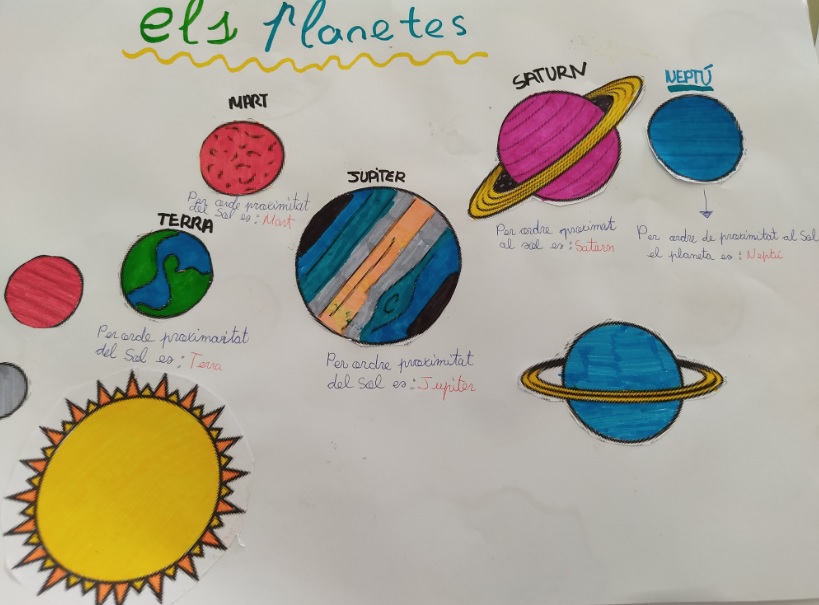 els planetes
MART
Per orde proximitat
del Sol es: Mart
TERRA
Per orde proximaritat
del Sol es: Terra
JUPiTER
Per ordre proximitat
del Sol es: Jupiter
SATURN
Per ordre proximat
al sol es: Saturn
NEPTÚ
Per ordre de proximitat al Sol
el planeta es: Neptú